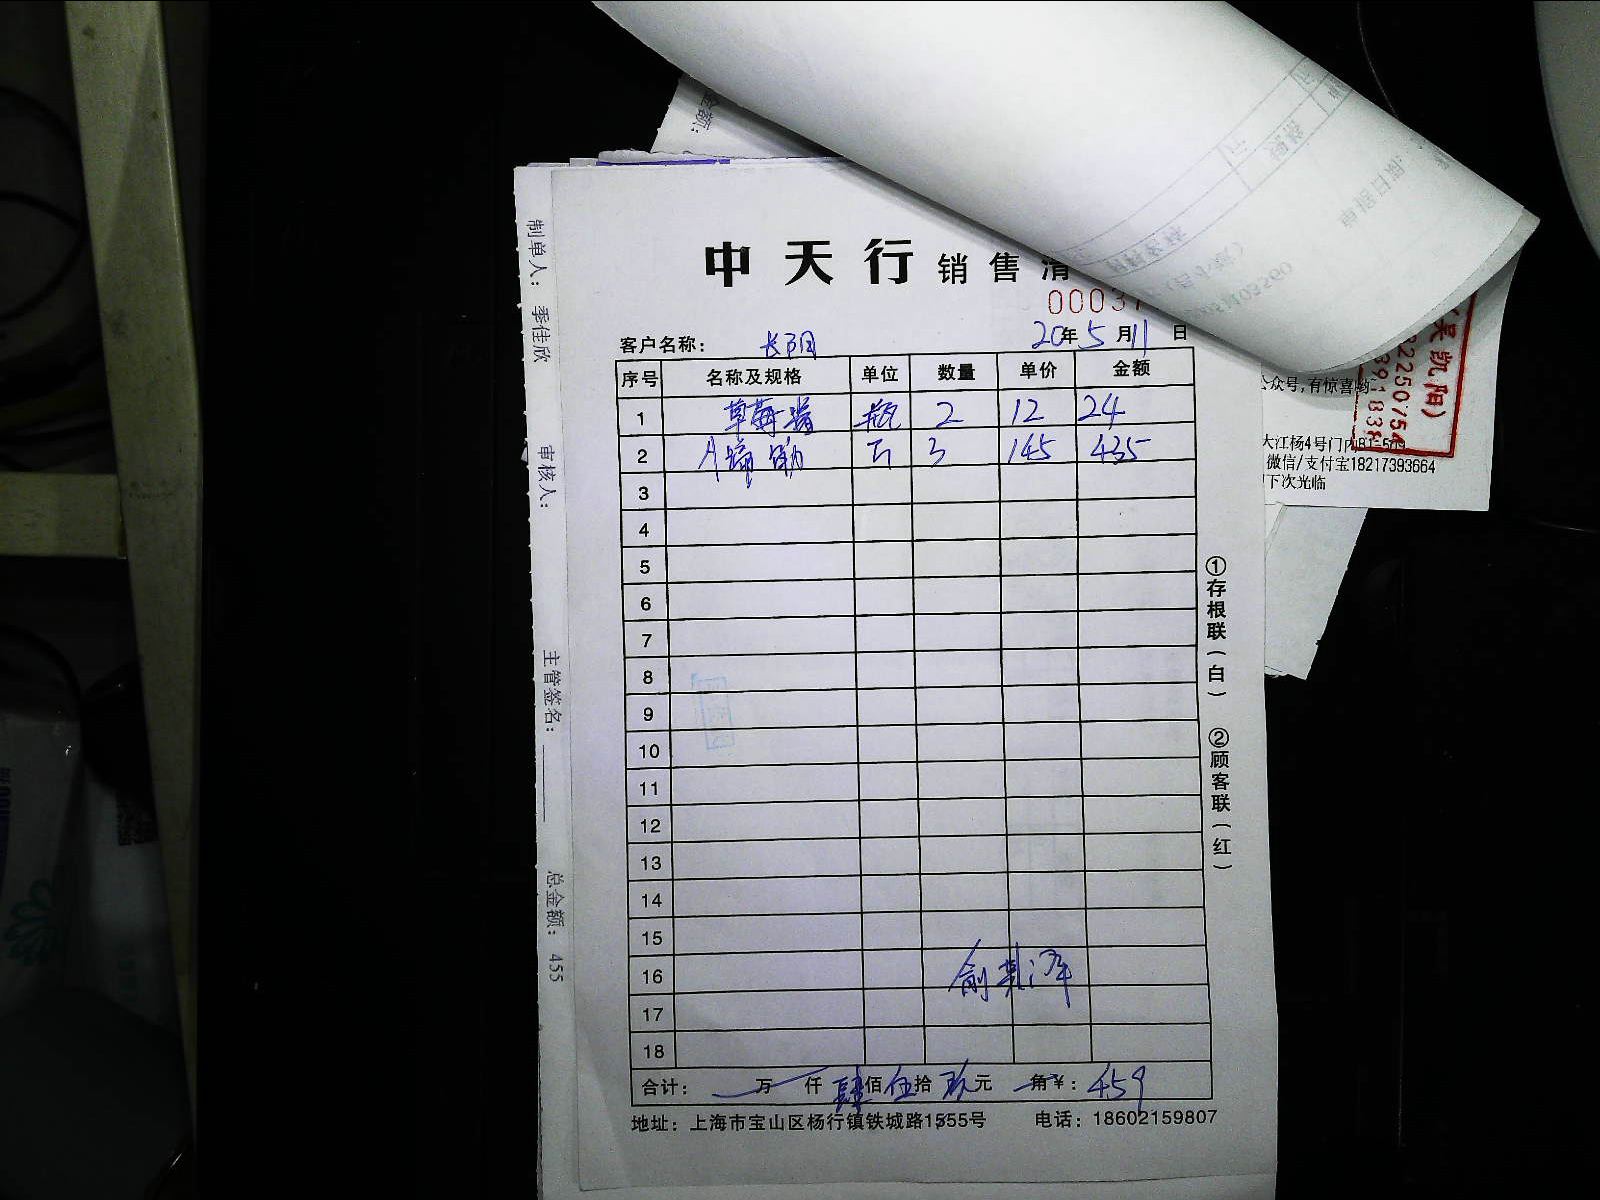 中天行 销售清
00037
客户名称: 长阳 20年5月11日
序号 名称及规格 单位 数量 单价 金额
1 草莓酱 瓶 2 12 24
2 3 145 435
3
4
5
6
7
8
9
10
11
12
13
14
15
16
17
18
合计: 万 仟 肆佰 伍拾 玖元 角 ¥: 459
地址: 上海市宝山区杨行镇铁城路1555号 电话: 18602159807
①存根联(白) ②顾客联(红)
制单人: 季佳欣 审核人: 主管签名: 总金额: 455
金额:
(吴凯阳)
公众号,有惊喜哟
大江杨4号门内B1-509
微信/支付宝18217393664
下次光临